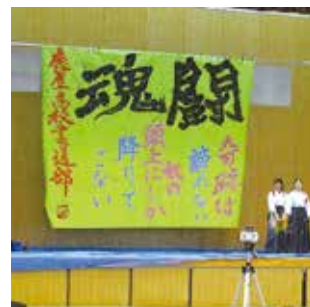 闘魂
奇跡は
諦めない
奴の
頭上にしか
降りて
こない
高校書道部